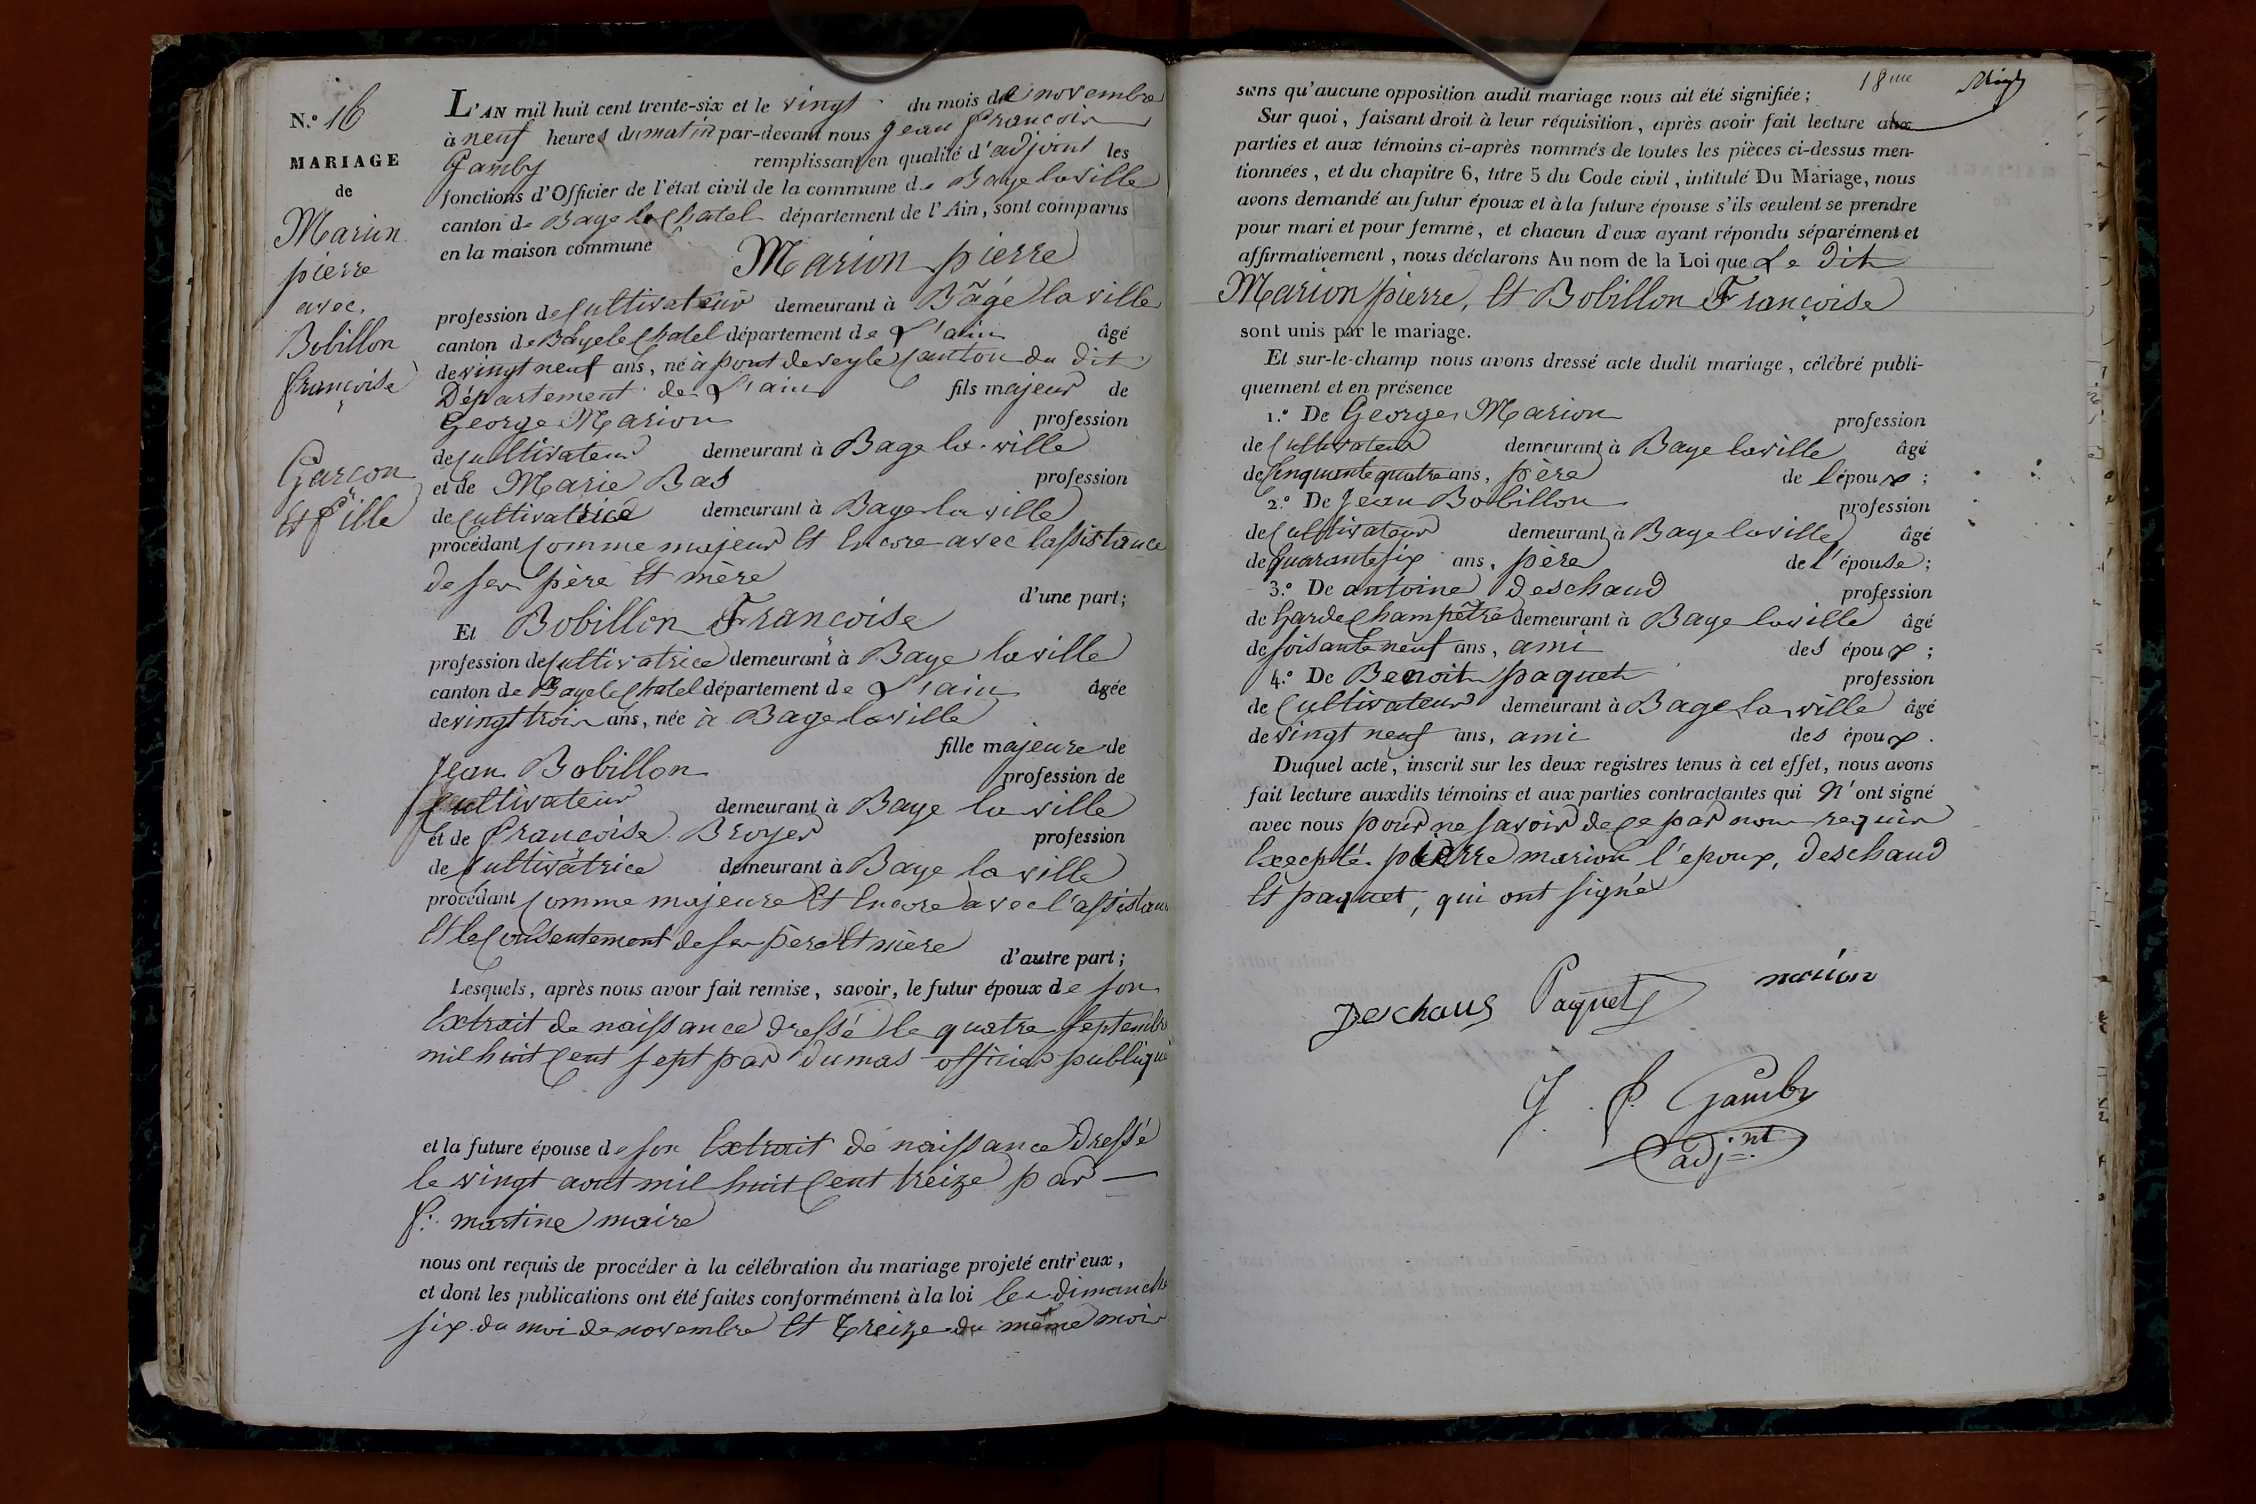 N.º 16
MARIAGE
de
Marion
pierre
avec
Bobillon
françoise
Garçon
Et fille
L'AN mil huit cent trente-six et le vingt du mois de novembre
à neuf heures du matin par-devant nous Jean françois
Gamby remplissant en qualité d'adjoint les
fonctions d'Officier de l'état civil de la commune de Bage la ville
canton de Bage le Chatel département de l'Ain, sont comparus
en la maison commune
Marion pierre
profession de Cultivateur demeurant à Bâgé la ville
canton de Bage le Chatel département de L'ain âgé
de vingt neuf ans, né à pont de veyle Canton du dit
Département de L'ain fils majeur de
George Marion profession
de Cultivateur demeurant à Bage la ville
et de Marie Bas profession
de Cultivatrice demeurant à Bage la ville
procédant Comme majeur Et Encore avec lassistance
de ses père Et mère
d'une part;
Et Bobillon Francoise
profession de Cultivatrice demeurant à Bage la ville
canton de Bage le Chatel département de L'ain âgée
de vingt trois ans, née à Bage la ville
fille majeure de
Jean Bobillon profession de
Cultivateur demeurant à Bage la ville
et de francoise Broyer profession
de Cultivatrice demeurant à Bage la ville
procédant Comme majeure Et Encore avec l'assistance
Et le Consentement de ses père Et mère
d'autre part;
Lesquels, après nous avoir fait remise, savoir, le futur époux de son
Extrait de naissance dressé le quatre septembre
mil huit Cent sept par dumas officier publique
et la future épouse de son Extrait de naissance Dressé
le vingt aout mil huit Cent treize par
f. martine maire
nous ont requis de procéder à la célébration du mariage projeté entr'eux,
et dont les publications ont été faites conformément à la loi les dimanche
six du moi de novembre Et treize du même mois
18me
sans qu'aucune opposition audit mariage nous ait été signifiée;
Sur quoi, faisant droit à leur réquisition, après avoir fait lecture aux
parties et aux témoins ci-après nommés de toutes les pièces ci-dessus men-
tionnées, et du chapitre 6, titre 5 du Code civil, intitulé Du Mariage, nous
avons demandé au futur époux et à la future épouse s'ils veulent se prendre
pour mari et pour femme, et chacun d'eux ayant répondu séparément et
affirmativement, nous déclarons Au nom de la Loi que Le dit
Marion pierre, Et Bobillon Françoise
sont unis par le mariage.
Et sur-le-champ nous avons dressé acte dudit mariage, célébré publi-
quement et en présence
1.º De George Marion profession
de Cultivateur demeurant à Bage la ville âgé
de Cinquante quatre ans, père de l'époux;
2.º De Jean Bobillon profession
de Cultivateur demeurant à Bage la ville âgé
de quarante six ans, père de l'épouse;
3.º De antoine Deschaud profession
de Garde Champêtre demeurant à Bage la ville âgé
de soisante neuf ans, ami des époux;
4.º De Benoit paquet profession
de Cultivateur demeurant à Bage la ville âgé
de vingt neuf ans, ami des époux.
Duquel acte, inscrit sur les deux registres tenus à cet effet, nous avons
fait lecture auxdits témoins et aux parties contractantes qui N'ont signé
avec nous pour ne savoir de Ce par nous requis
Excepté pierre marion l'epoux, Deschaud
Et paquet, qui ont signé
marion
Deschaud Paquet
J. f. Gamby
adj.nt